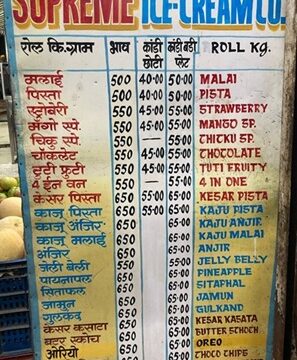 SUPREME ICE-CREAM CO.
रोल कि.ग्राम भाव कांडी छोटी कांडी बडी प्लेट ROLL Kg.
मलाई 500 40-00 50-00 MALAI
पिस्ता 500 40-00 50-00 PISTA
स्ट्रोबेरी 550 45-00 55-00 STRAWBERRY
मेंगो स्पे. 550 45-00 55-00 MANGO SP.
चिकु स्पे. 550 — 55-00 CHICKU SP.
चोकलेट 550 45-00 55-00 CHOCOLATE
टूटी फ्रुटी 550 45-00 55-00 TUTI FRUITY
4 ईन वन 550 — 55-00 4 IN ONE
केसर पिस्ता 650 55-00 65-00 KESAR PISTA
काजू पिस्ता 650 55-00 65-00 KAJU PISTA
काजू अंजिर 650 65-00 KAJU ANJIR
काजू मलाई 650 65-00 KAJU MALAI
अंजिर 650 65-00 ANJIR
जेली बेली 550 55-00 JELLY BELLY
पायनापल PINEAPPLE
सिताफल 650 65-00 SITAPHAL
जामुन 650 65-00 JAMUN
गुलकंद 650 65-00 GULKAND
केसर कसाटा 650 65-00 KESAR KASATA
बटर स्कॉच 650 65-00 BUTTER SCHOCH
ओरियो 650 65-00 OREO
CHOCO CHIPS